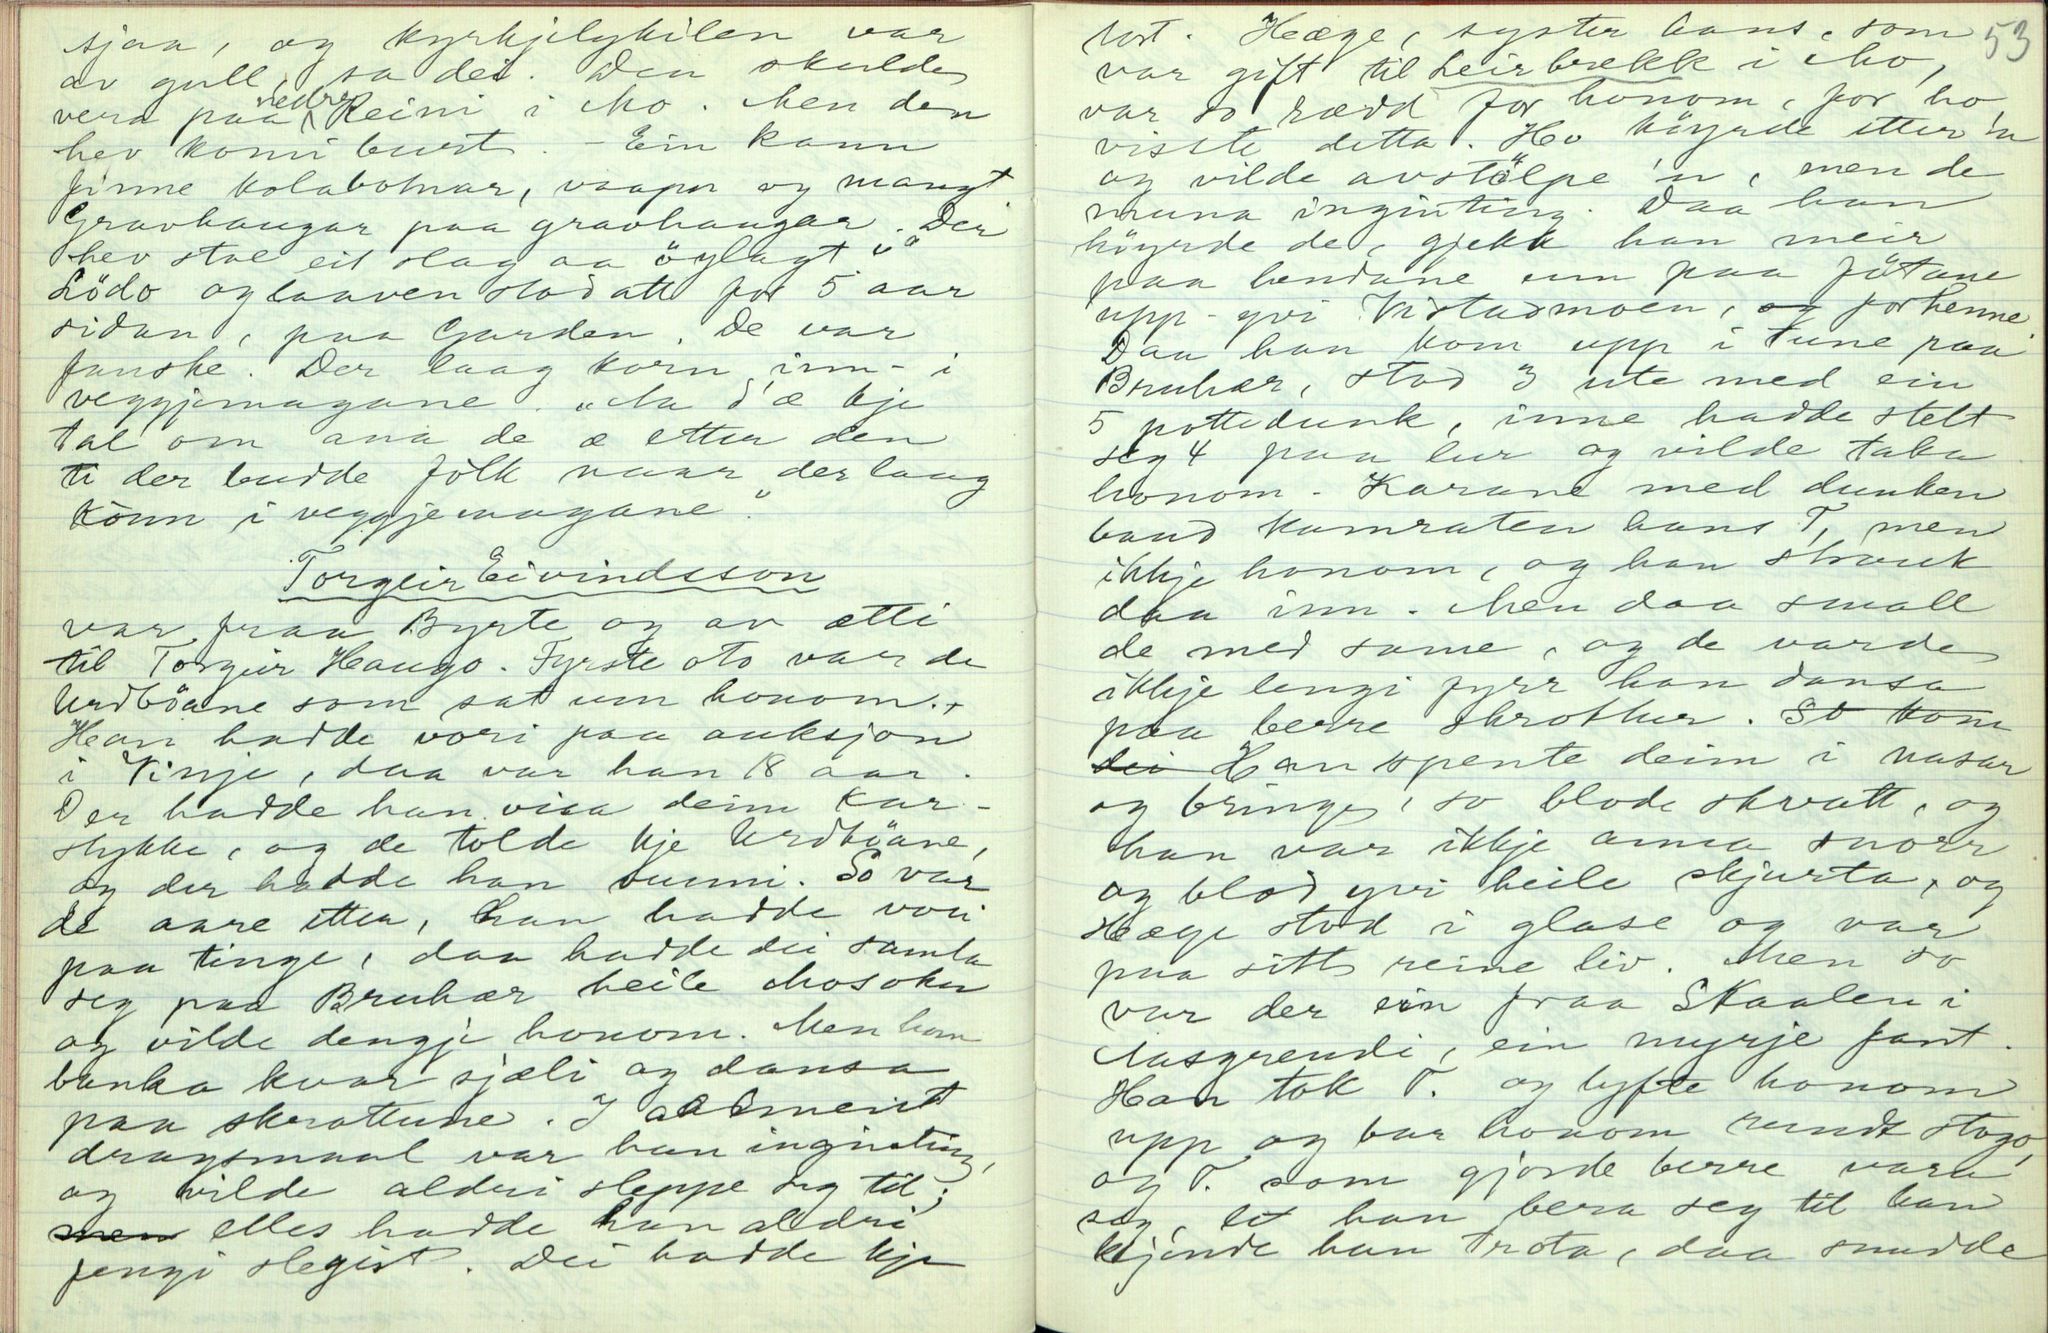 sjaa, og kyrkjelykilen var
av gull, sa dei. Den skulde
vera paa nedre Reini i Mo. Men den
hev komi burt. - Ein kann
finne kolabotnar, vaapn og mangt
Gravhaugar paa gravhaugar. Der
hev stae eit slag aa øylagt i
Lödo og laaven stod att for 5 aar
sidan, paa Garden. De var
funske. Der laag korn inn - i
veggjemagane. "Ne d'æ kje
tal om ana de æ etter den
ti der budde folk naar der laag
könn i veggjemagane".
Torgeir Eivindsson
var fraa Byrte og av ætti
til Torgeir Haugo. Fyrste oto var de
Urdböane som sat um honom.
Han hadde vori paa auksjon
i Vinje, daa var han 18 aar.
Der hadde han visa deim kar-
stykke, og de tolde kje Urdböane,
og der hadde han vunni. So var
de aare etter, han hadde vori
paa tinge, daa hadde dei samla
seg paa Bruhær heile Mosokn
og vilde dengje honom. Men han
banka kvar sjæli og dansa
paa skrottune. I
dragsmaal var han inginting,
og vilde aldri sleppe seg til;
men elles hadde han aldri
fengi slegist. Dei hadde kje
53
tort. Hæge, syster hans, som
var gift til Leirbrekk i Mo,
var so rædd for honom, for ho
visste detta. Ho köyrde etter 'n
og vilde avstölpe 'n, men de
muna inginting. Daa han
höyrde de, gjekk han meir
paa hendane enn paa fötane
upp - yvi Vistadmoen, og for henne.
Daa han kom upp i tune paa
Bruhær, stod 3 ute med ein
5 pottedunk, inne hadde stelt
seg 4 paa lur og vilde taka
honom. - Karane med dunken
baud kamraten hans T, men
ikkje honom, og han strauk
daa inn. Men daa small
de med same, og de varde
ikkje lengi fyrr han dansa
paa berre skrottur. So kom
dei Han spente deim i nasar
og bringe, so blode skvatt, og
han var ikkje anna snorr
og blod yvi heile skjurta, og
Hæge stod i glase og var
paa sitt reine liv. Men so
var der ein fraa Skaalen i
Aasgrendi, ein myrje fant.
Han tok T. og lyfte honom
upp og bar honom rundt stogo,
og T. som gjorde berre vara
seg, let han bera seg til han
kjende han trota, daa snudde